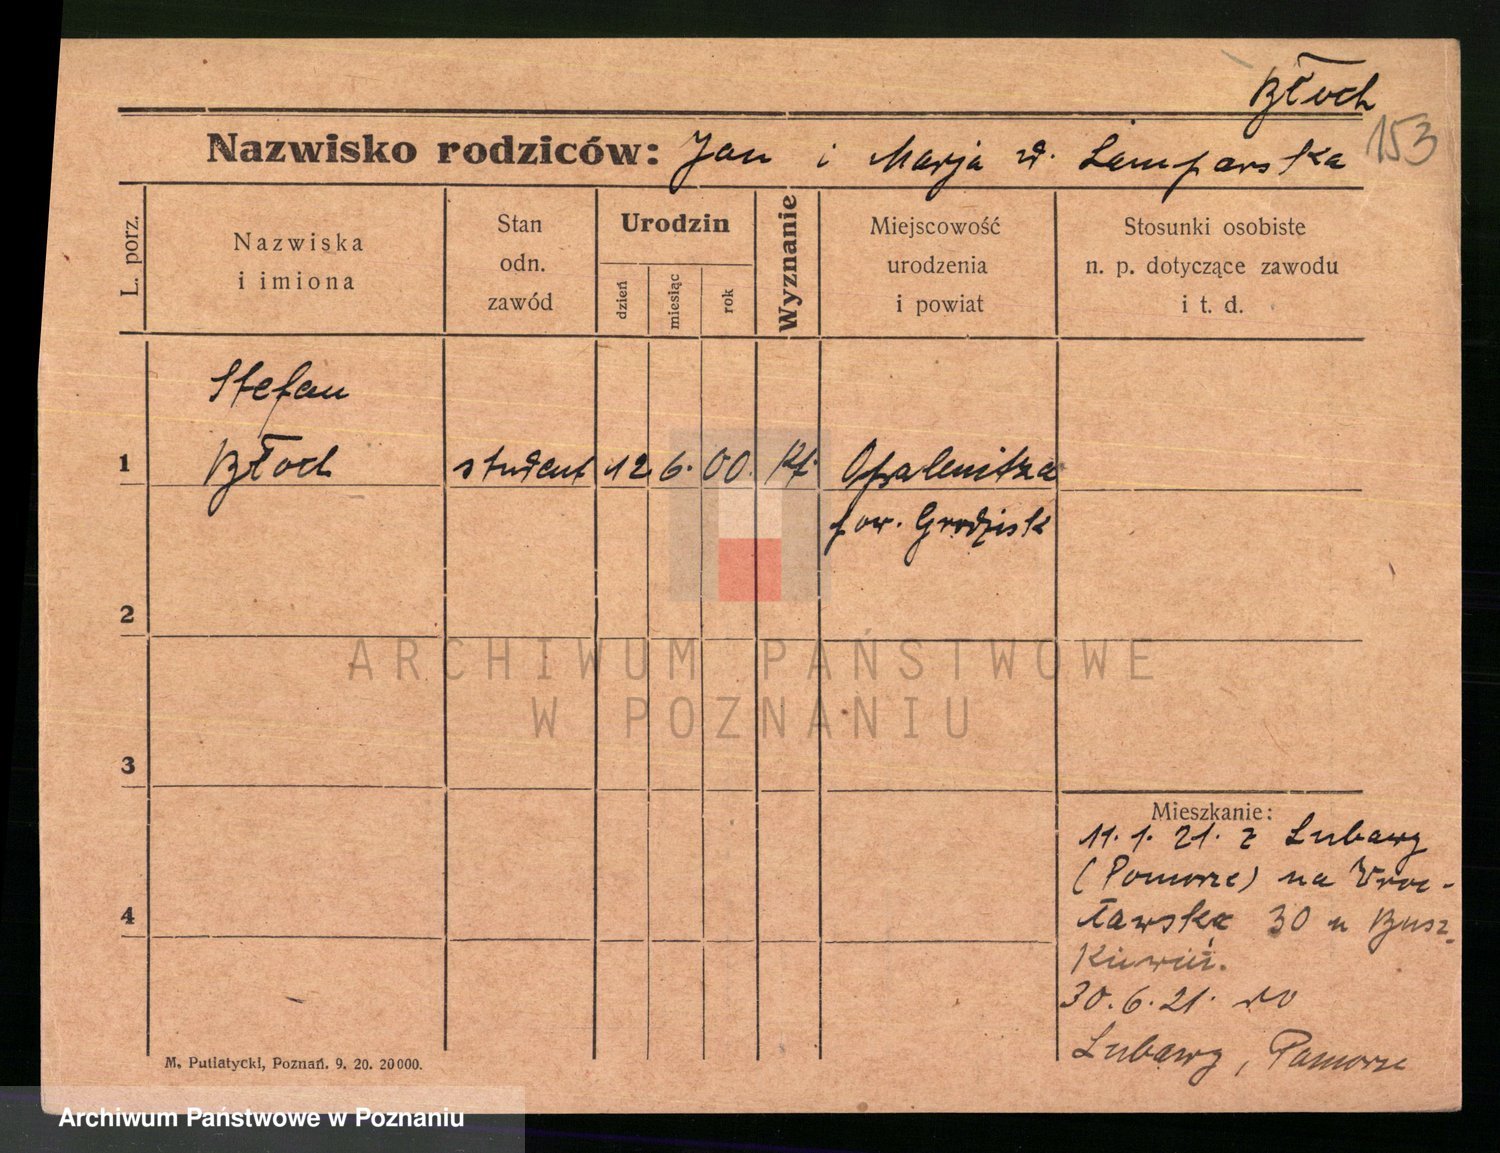 Błoch
153
Nazwisko rodziców: Jan i Marja z d. Lamparska
L. porz.
Nazwiska
i imiona
Stan
odn.
zawód
Urodzin
dzień
miesiąc
rok
Wyznanie
Miejscowość
urodzenia
i powiat
Stosunki osobiste
n. p. dotyczące zawodu
i t. d.
Stefan
1 Błoch student 12. 6. 00. kt. Opalenitza
pow. Grodzisk
2
ARCHIWUM PAŃSTWOWE
W POZNANIU
3
Mieszkanie:
11. 1. 21. z Lubawy
(Pomorze) na Wroc-
4
ławska 30 u Busz-
30. 6. 21. do
Lubawy, Pomorze
M. Putiatycki, Poznań. 9. 20. 20000.
Archiwum Państwowe w Poznaniu